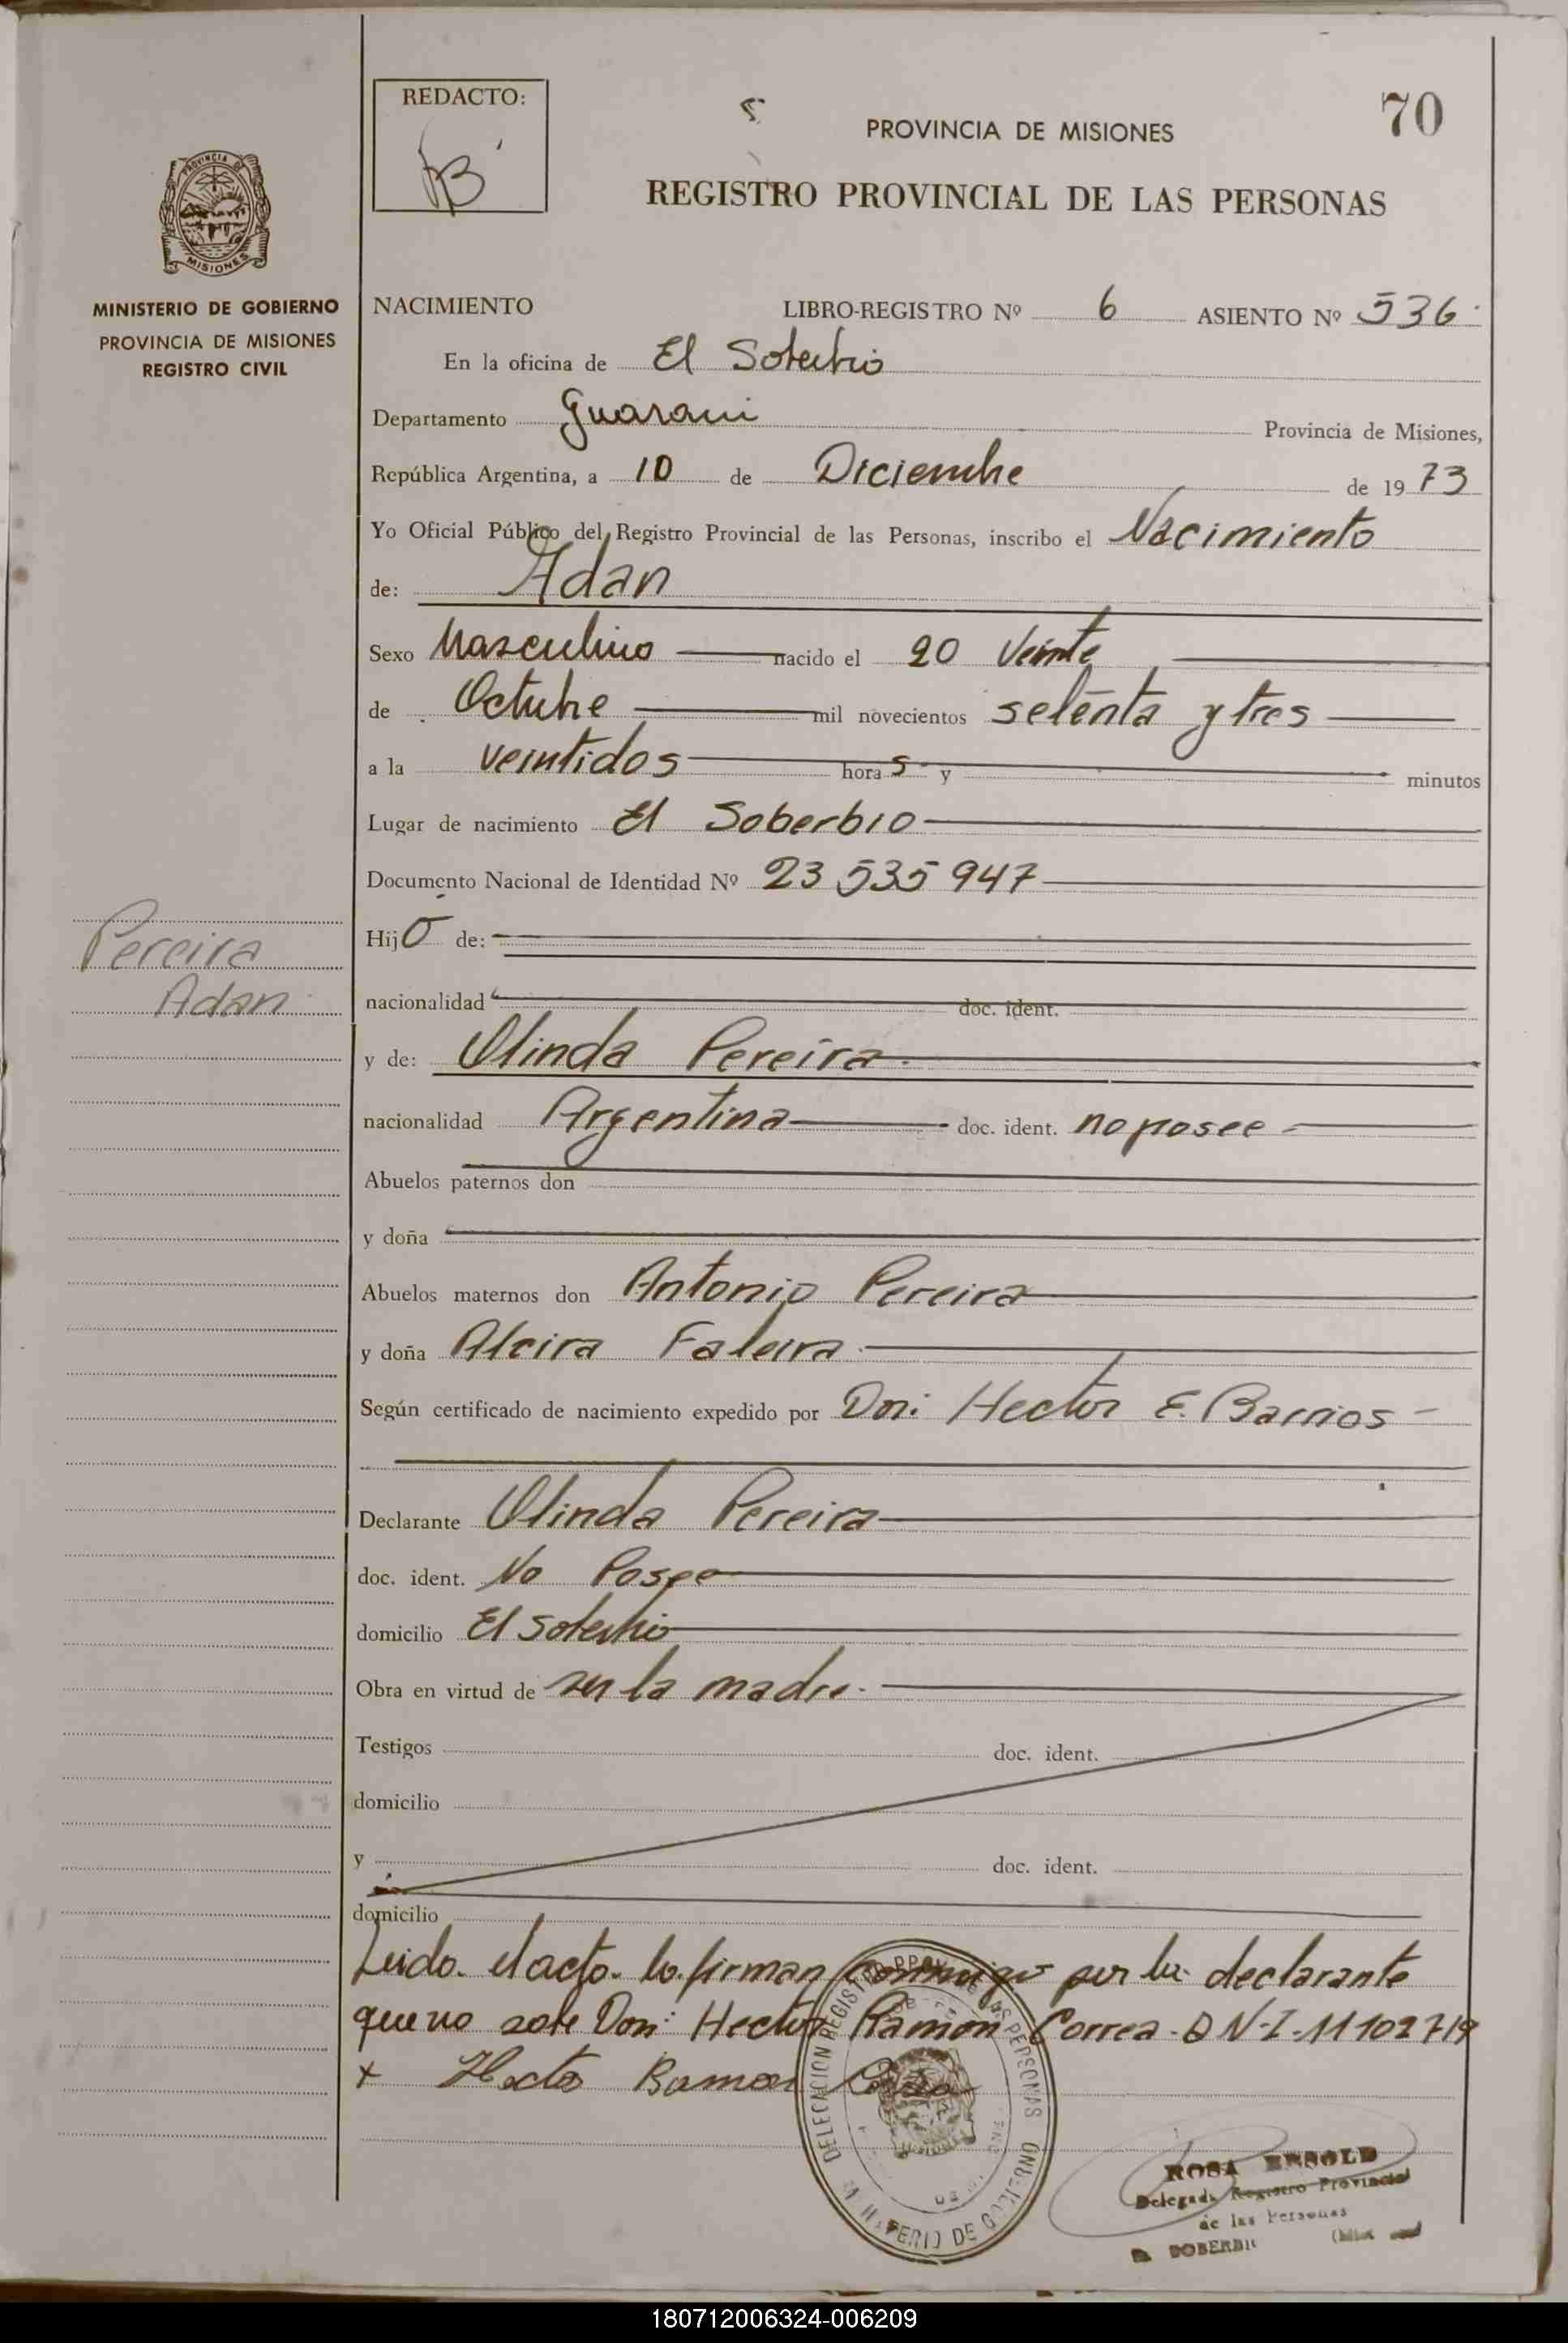 REDACTO:
70
PROVINCIA DE MISIONES
REGISTRO PROVINCIAL DE LAS PERSONAS
PROVINCIA DE
MISIONES
MINISTERIO DE GOBIERNO
PROVINCIA DE MISIONES
REGISTRO CIVIL
NACIMIENTO LIBRO-REGISTRO Nº 6 ASIENTO Nº 536
En la oficina de El Soberbio
Departamento Guarani Provincia de Misiones,
República Argentina, a 10 de Diciembre de 1973
Yo Oficial Público del Registro Provincial de las Personas, inscribo el Nacimiento
de: Adan
Sexo Masculino nacido el 20 Veinte
de Octubre mil novecientos setenta y tres
a la veintidos horas y minutos
Lugar de nacimiento El Soberbio
Documento Nacional de Identidad Nº 23 535 947
Hijo de:
Pereira
Adan
nacionalidad doc. ident.
y de: Olinda Pereira
nacionalidad Argentina doc. ident. no posee
Abuelos paternos don
y doña
Abuelos maternos don Antonio Pereira
y doña Alcira Faleira
Según certificado de nacimiento expedido por Don: Hector E. Barrios
Declarante Olinda Pereira
doc. ident. No Posee
domicilio El Soberbio
Obra en virtud de ser la madre.
Testigos doc. ident.
domicilio
y doc. ident.
domicilio
Leido el acto lo firman conmigo por la declarante
que no sabe Don: Hector Ramon Correa - D N-I-11102719
x Hecto Ramon Correa
DELEGACION REGISTRO PROV. DE LAS PERSONAS
MINISTERIO DE GOBIERNO
ROSA
Delegada Registro Provincial
de las Personas
SOBERBIO
180712006324-006209